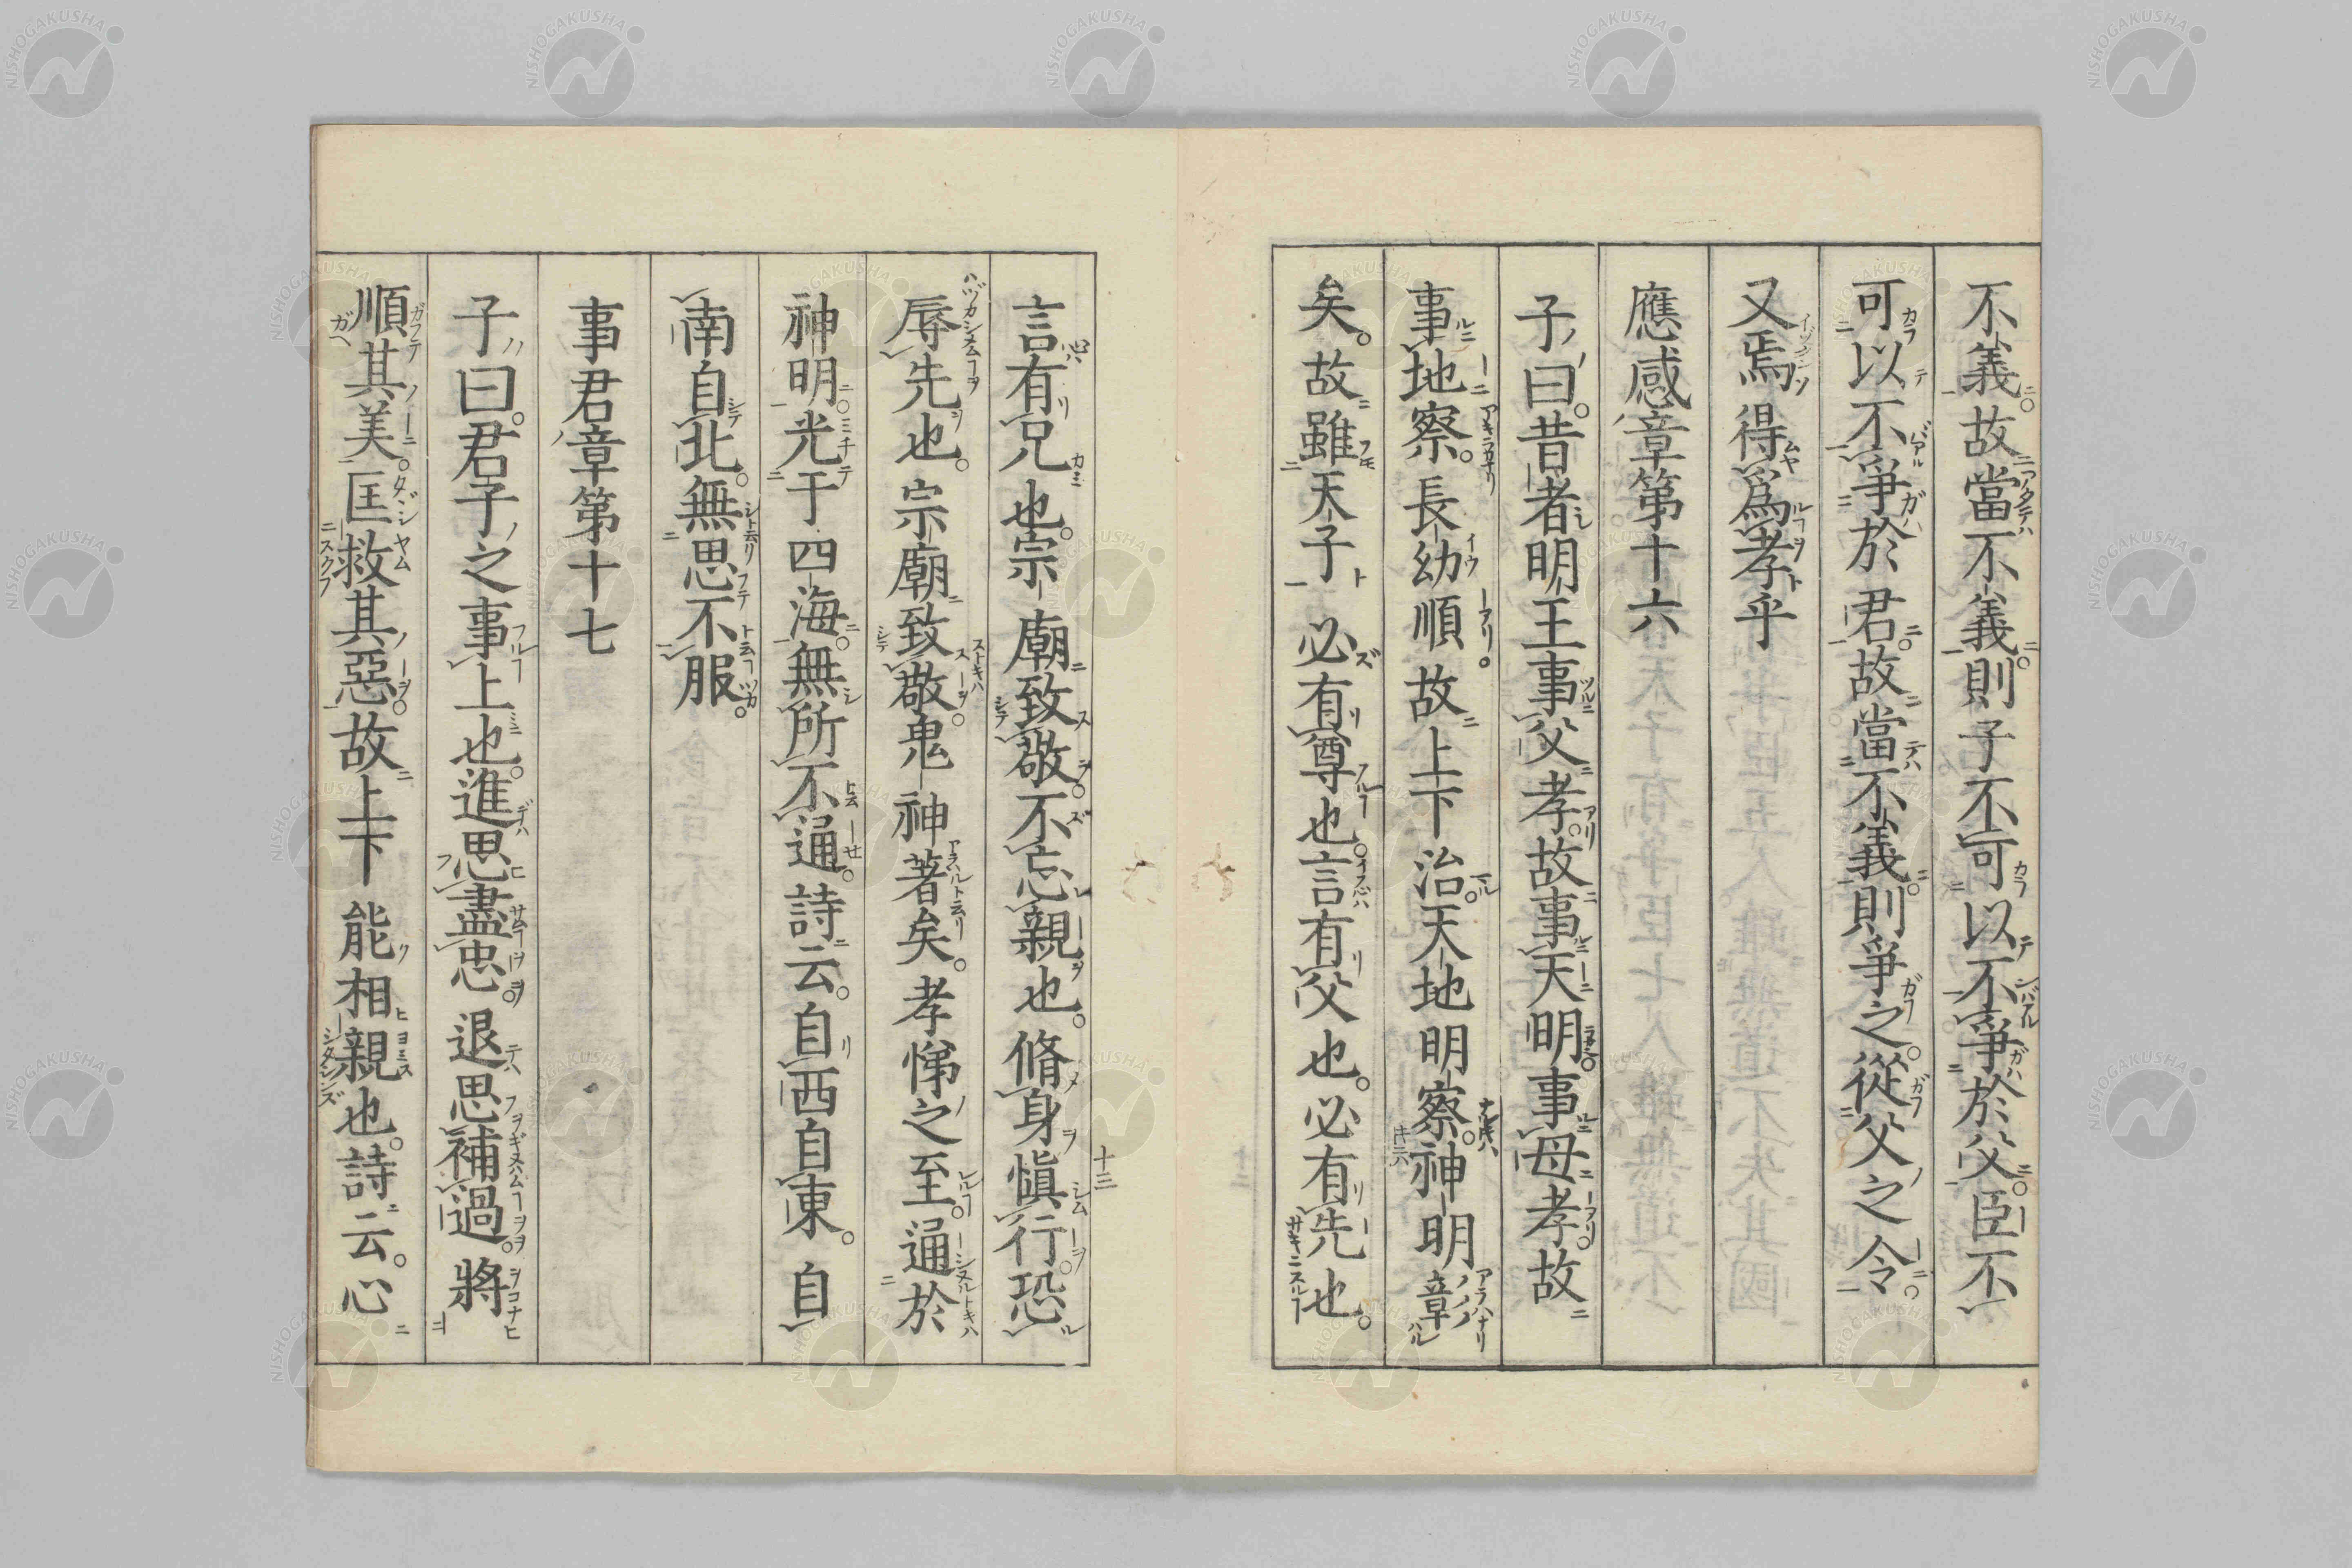 不義故當不義則子不可以不爭於父臣不
可以不爭於君故當不義則爭之從父之令
又焉得爲孝乎
應感章第十六
子曰昔者明王事父孝故事天明事母孝故
事地察長幼順故上下治天地明察神明章
矣故雖天子必有尊也言有父也必有先也
言有兄也宗廟致敬不忘親也脩身愼行恐
辱先也宗廟致敬鬼神著矣孝悌之至通於
神明光于四海無所不通詩云自西自東自
南自北無思不服
事君章第十七
子曰君子之事上也進思盡忠退思補過將
順其美匡救其惡故上下能相親也詩云心
十三
NISHOGAKUSHA